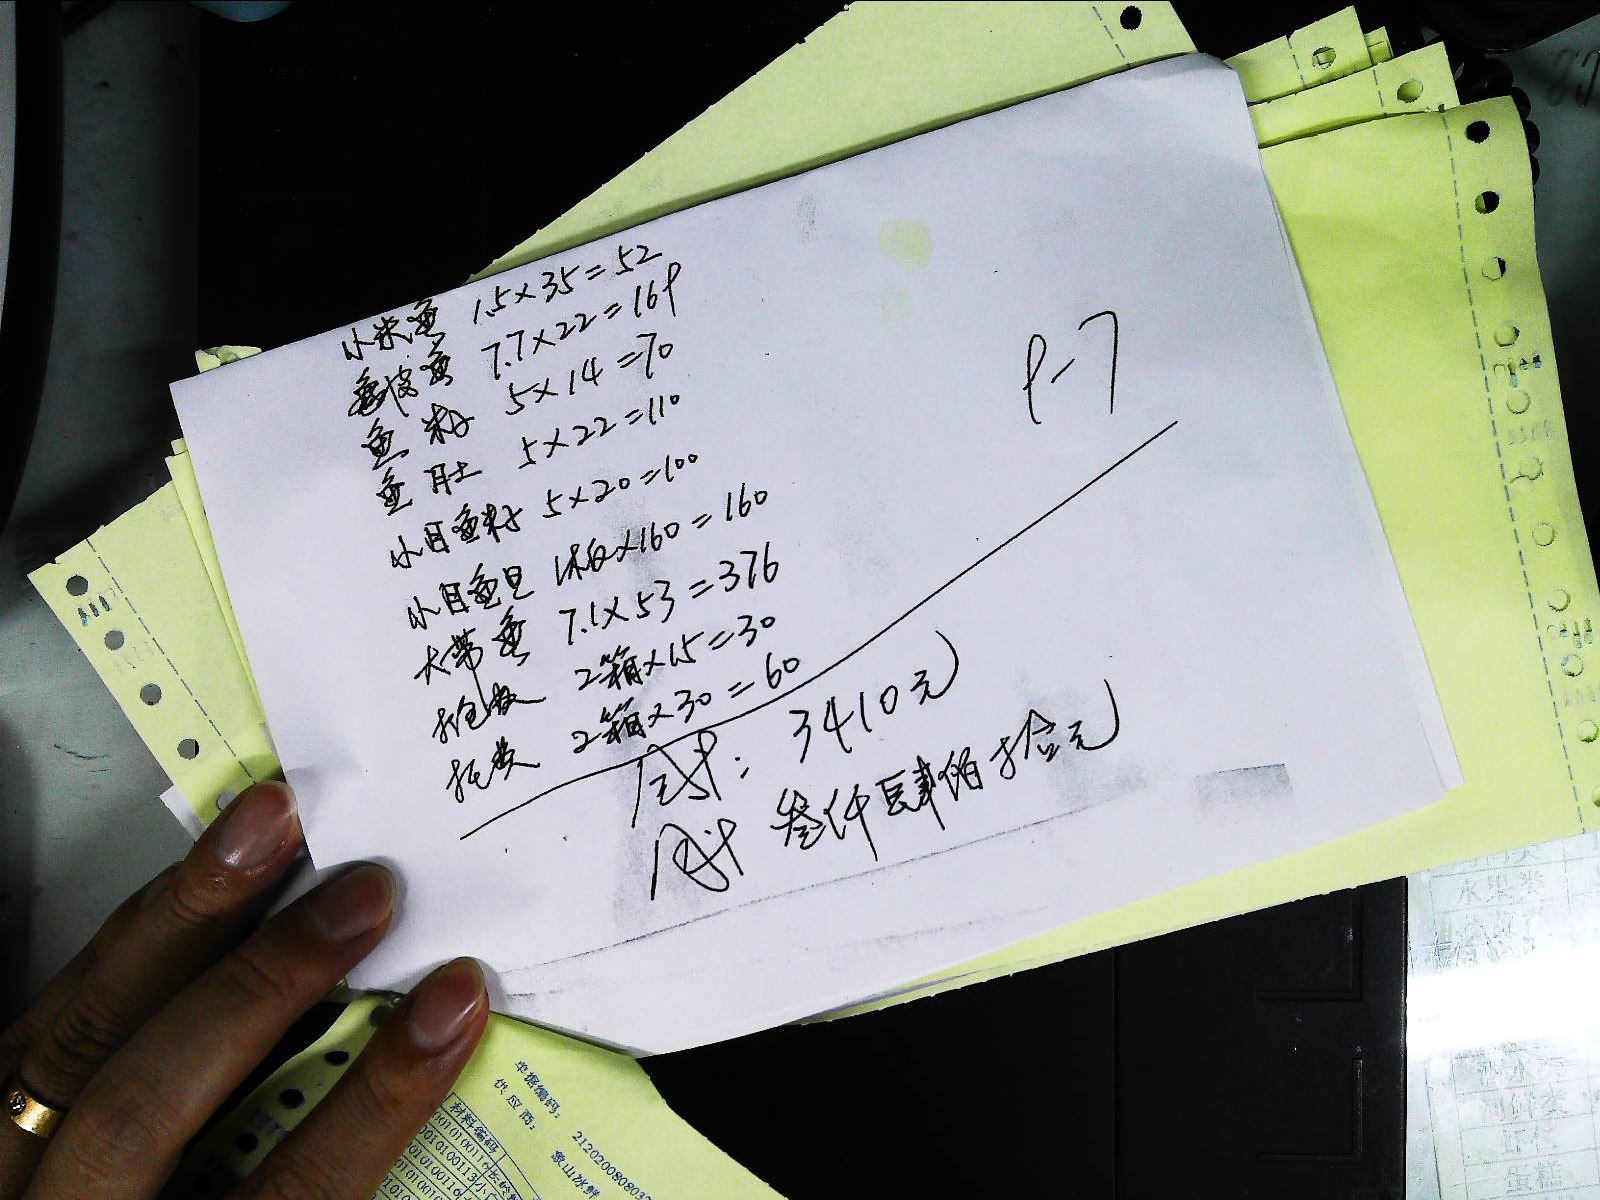 小米鱼 1.5×35=52
鱼皮鱼 7.7×22=169
鱼籽 5×14=70
鱼肚 5×22=110
小目鱼籽 5×20=100
小目鱼旦 1板×160=160
大带鱼 7.1×53=376
2箱×15=30
托费 2箱×30=60
9-7
合计: 3410元
合计 叁仟肆佰拾元
单据编码: 2120200808032
供应商: 象山冰鲜
材料编码
水果类
虾仁
蛋糕